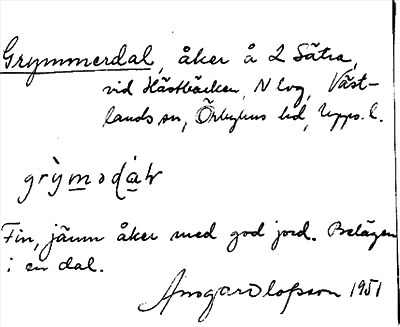 Grymmerdal, åker å 2 Sätra,
vid Hästbäcken, N log, Väst-
lands sn, Örbyhus hd, Upps. l.
grỳmədàɫr
Fin, jämn åker med god jord. Belägen
i en dal.
Ansgar Olofsson 1951